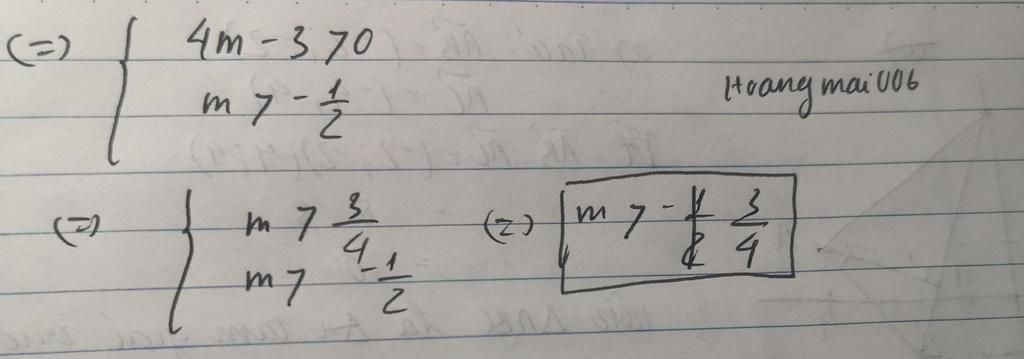 (=) { 4m - 3 > 0
m > - 1/2
Hoangmai006
(=) { m > 3/4
m > -1/2
(=) m > - 3/4